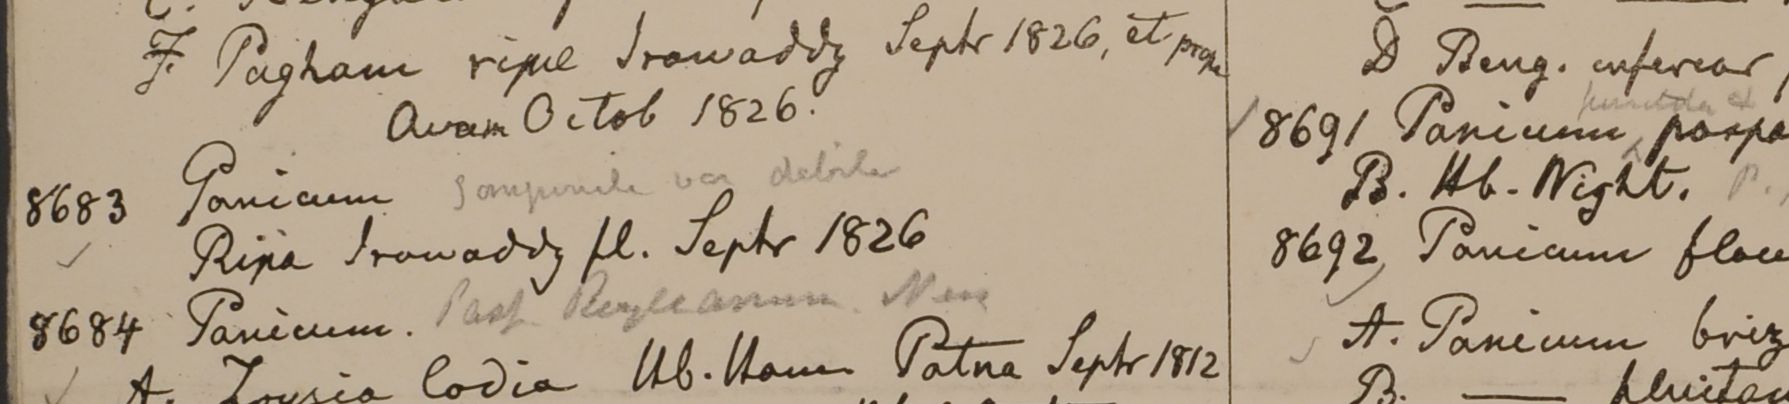 F. Pagham ripae Irawaddy Septr 1826, et prope
Avam Octob 1826.
8683 Panicum var debile
Ripa Irawaddy fl. Septr 1826
8684 Panicum. Royleanum Nees
A. Hb. Ham Patna Septr 1812
D Beng. inferior
8691 Panicum
B. Hb. Wight.
8692 Panicum
A. Panicum briz
B. —